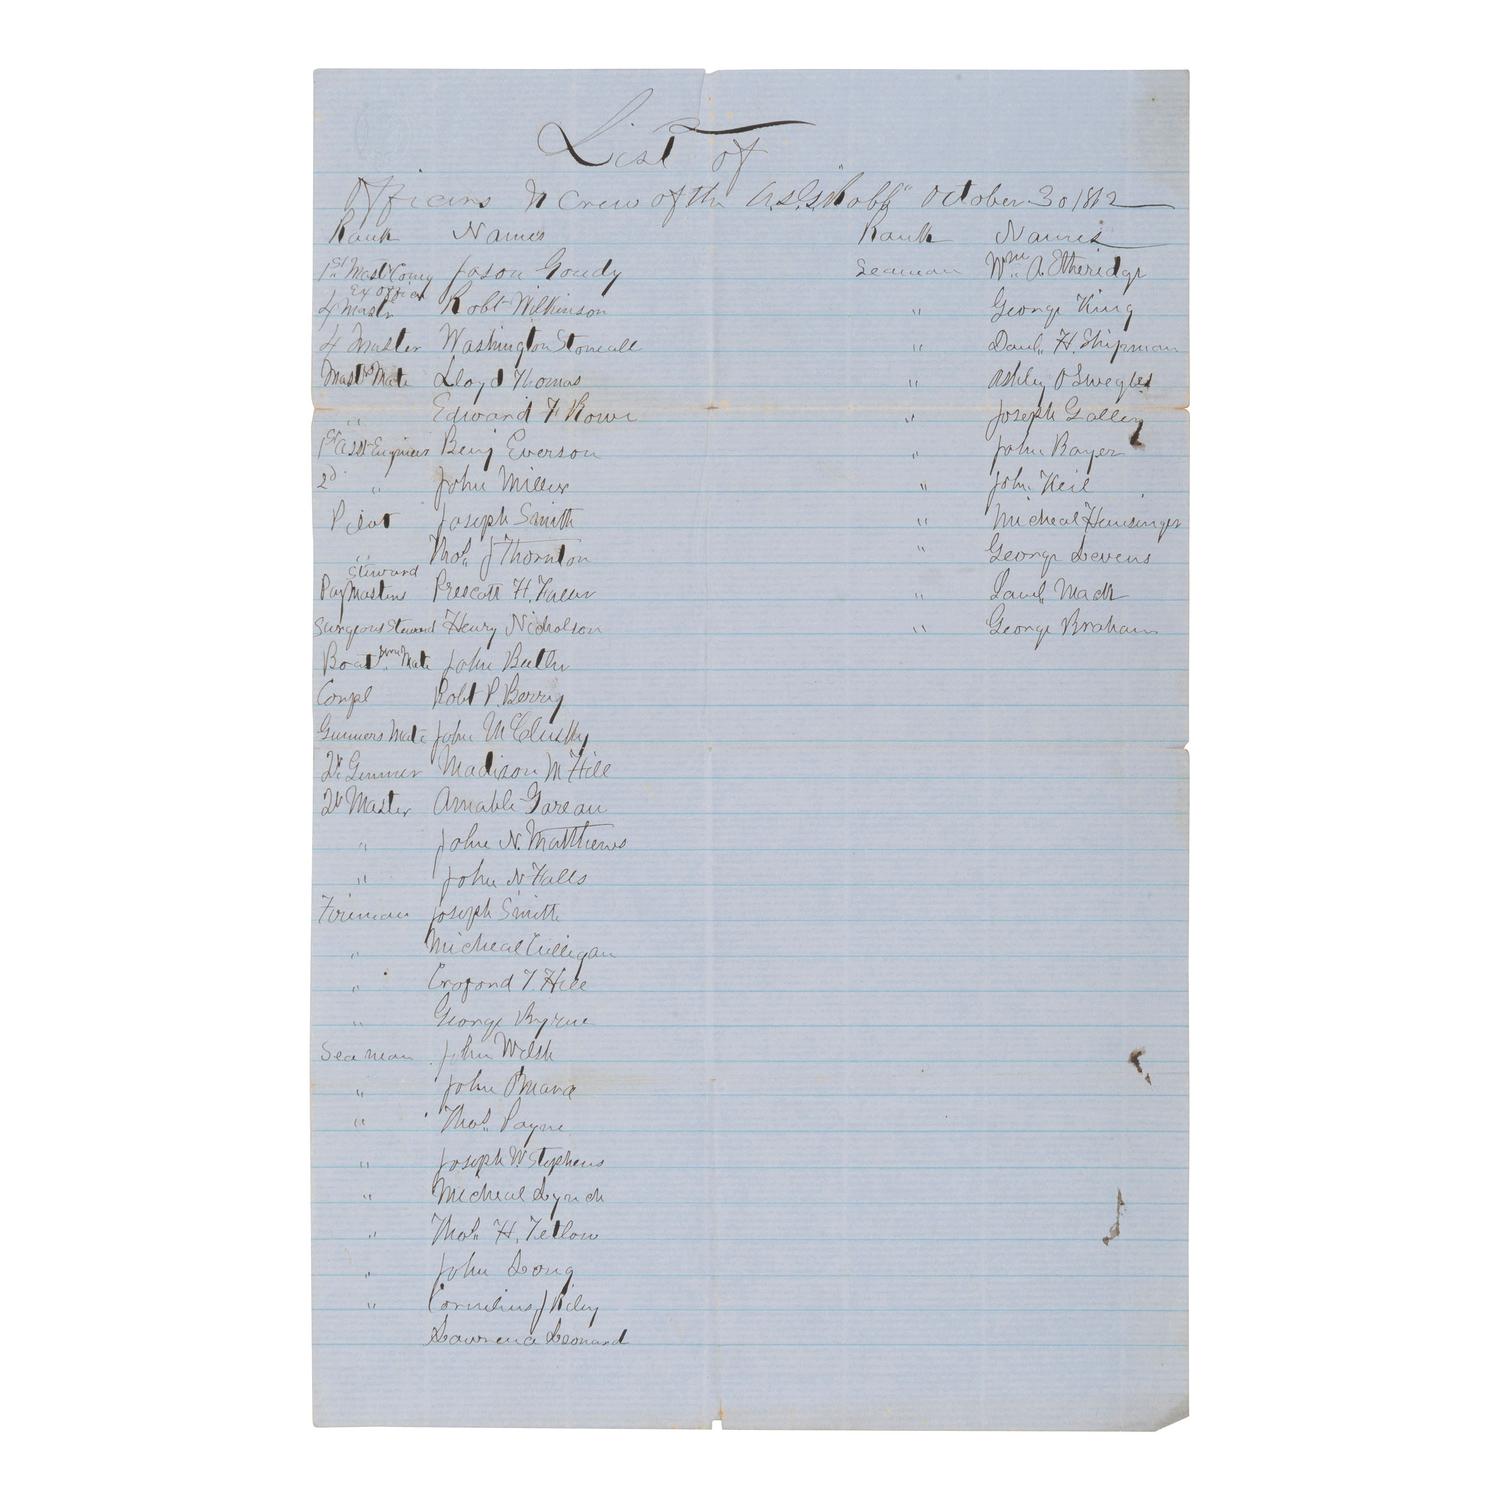 List of
Officers & Crew of the U.S.S. "Robb" October 30 1862
Rank Names
1st Mast Comg Jason Goudy
Ex Officer
4 Mastr Robt Wilkinson
4 Master Washington Stoneall
Mastrs Mate Lloyd Thomas
" Edward F Rowe
1st Asst Engineer Benj Everson
2d " John Miller
Pilot Joseph Smith
" Thos. J Thornton
Steward
Paymasters Prescott H. Faller
Surgeons Steward Henry Nicholson
Boatswns Mate John Butler
Corpl Robt P. Berry
Gunners Mate John McClusky
2r Gunner Madison M Hill
2r Master Amable Gareau
" John N. Matthews
" John N Falls
Fireman Joseph Smith
" Micheal Cilligan
" Croford T. Hill
" George Byrne
Seaman John Welsh
" John Omara
" Thos. Payne
" Joseph W. Stephens
" Micheal Lynch
" Thos. H. Tetlow
" John Long
" Cornelius J Riley
Lawrence Leonard
Rank Names
Seaman Wm. A. Etheridge
" George King
" Danl. H. Shipman
" Ashley O Swegles
" Joseph Gallen
" John Bayer
" John Keil
" Micheal Hunsinger
" George Levens
" Saml. Mack
" George Braham